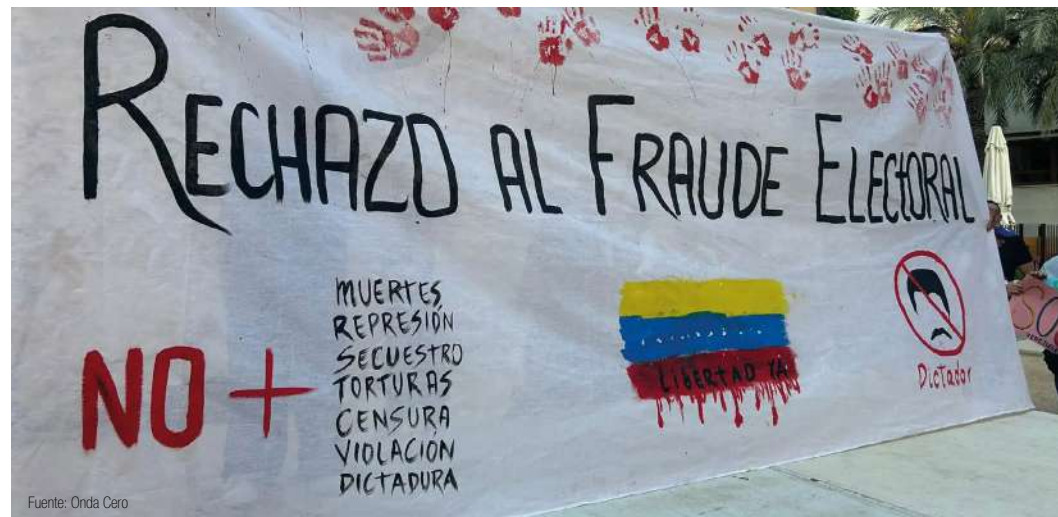 RECHAZO AL FRAUDE ELECTORAL
NO +
MUERTES
REPRESIÓN
SECUESTRO
TORTURAS
CENSURA
VIOLACIÓN
DICTADURA
LIBERTAD YA
Dictador
Fuente: Onda Cero